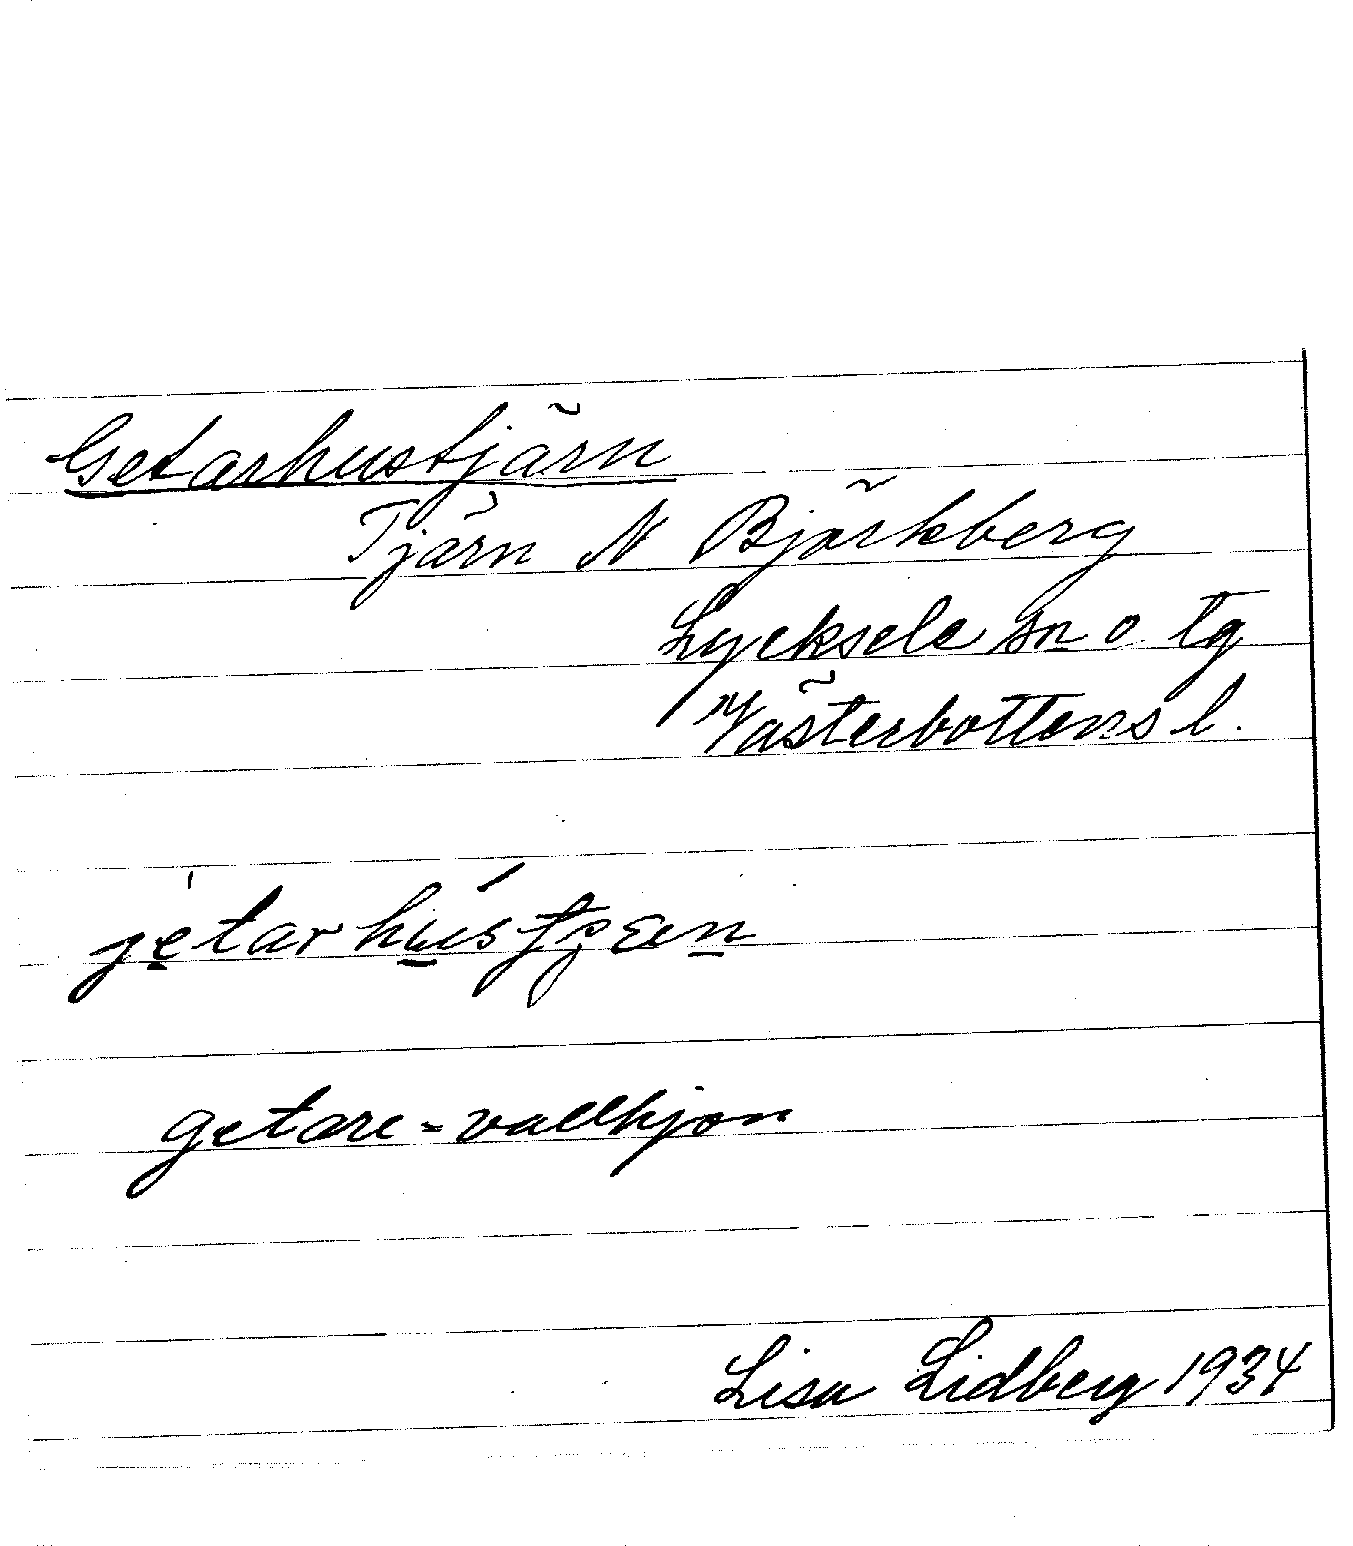 Getarhustjärn
Tjärn N Björkberg
Lycksele sn o tg
Västerbottens l.
getare-vallhjon
Lisa Lidberg 1934